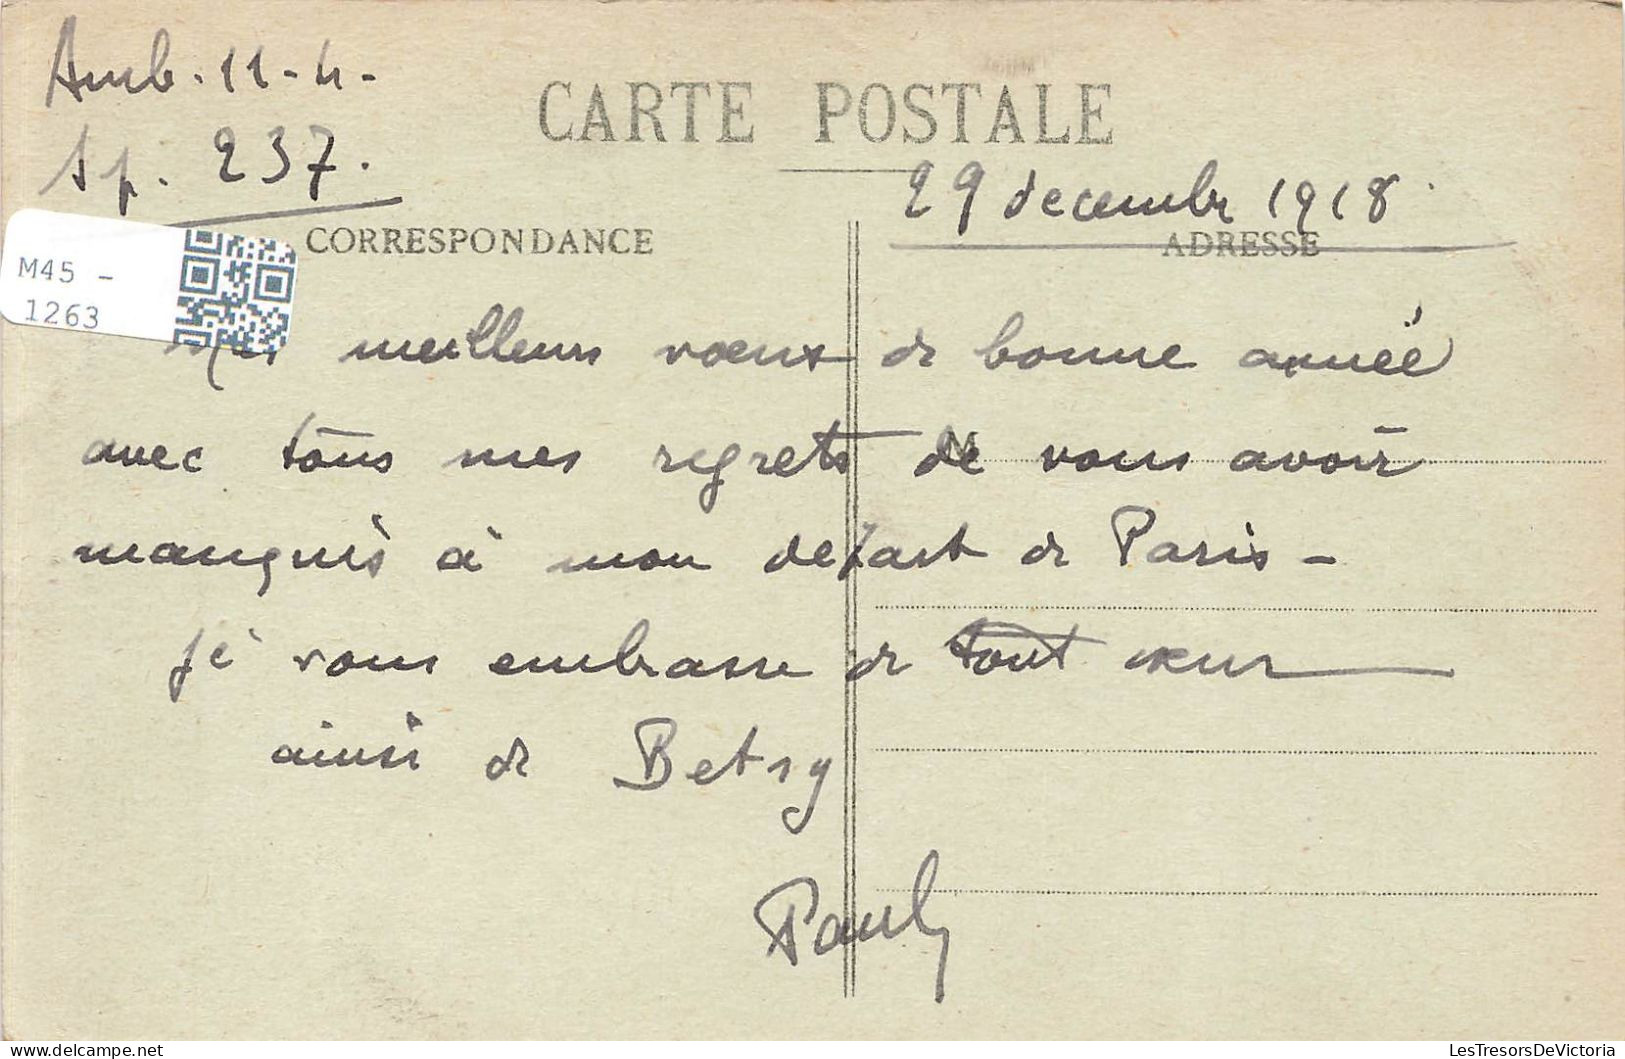 Amb. 11-4-
CARTE POSTALE
Sp. 237.
29 decembre 1918.
CORRESPONDANCE
ADRESSE
M45 -
1263
Mes meilleurs voeux de bonne année
avec tous mes regrets de vous avoir
manqués à mon depart de Paris -
Je vous embrasse de tout cœur
ainsi de Betsy
Paul
LesTresorsDeVictoria